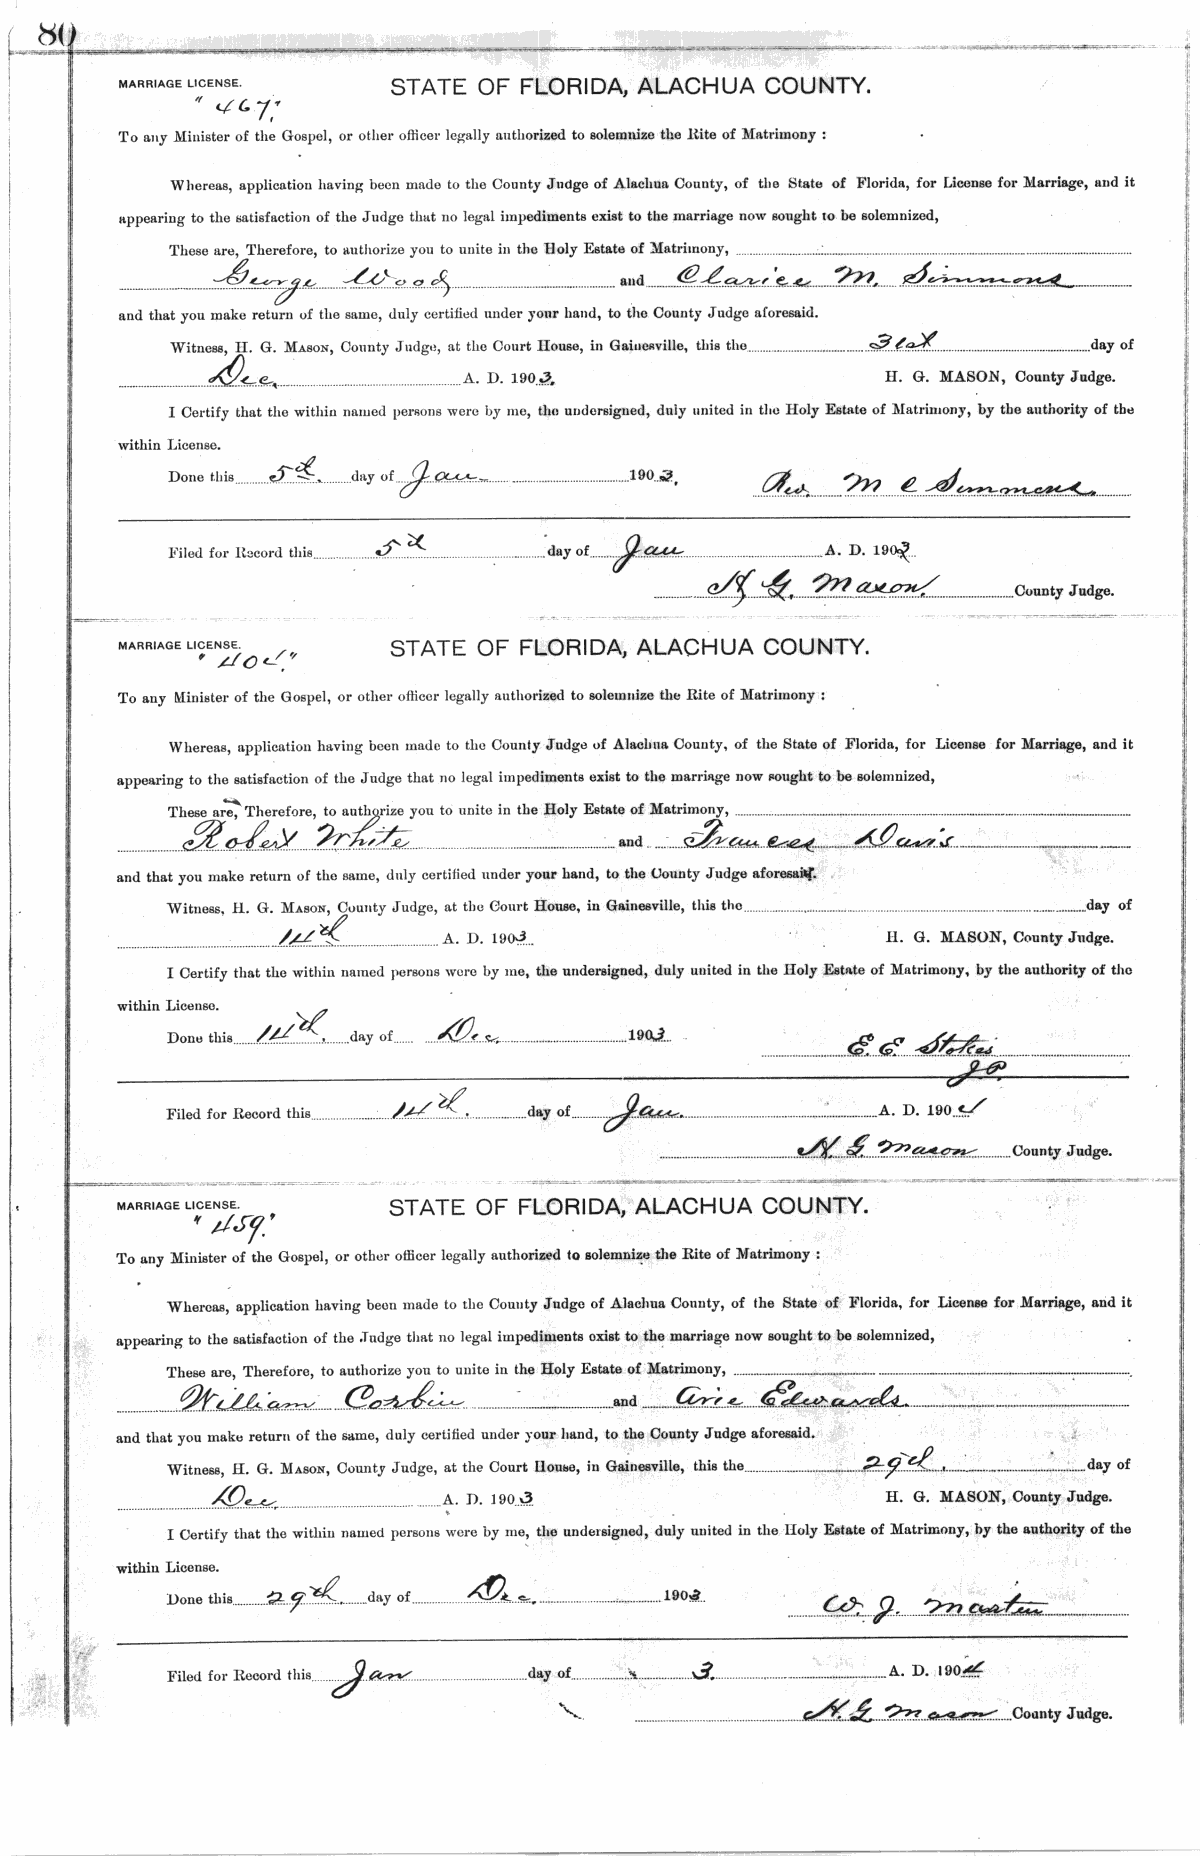 80
MARRIAGE LICENSE.
STATE OF FLORIDA, ALACHUA COUNTY.
" 467."
To any Minister of the Gospel, or other officer legally authorized to solemnize the Rite of Matrimony :
Whereas, application having been made to the County Judge of Alachua County, of the State of Florida, for License for Marriage, and it
appearing to the satisfaction of the Judge that no legal impediments exist to the marriage now sought to be solemnized,
These are, Therefore, to authorize you to unite in the Holy Estate of Matrimony,
George Wood and Clarice M. Simmons
and that you make return of the same, duly certified under your hand, to the County Judge aforesaid.
Witness, H. G. MASON, County Judge, at the Court House, in Gainesville, this the 31st day of
Dec. A. D. 1903. H. G. MASON, County Judge.
I Certify that the within named persons were by me, the undersigned, duly united in the Holy Estate of Matrimony, by the authority of the
within License.
Done this 5th. day of Jan 1903. Rev. M C Simmons.
Filed for Record this 5th day of Jan A. D. 1903
H G. Mason. County Judge.
MARRIAGE LICENSE.
STATE OF FLORIDA, ALACHUA COUNTY.
" 404."
To any Minister of the Gospel, or other officer legally authorized to solemnize the Rite of Matrimony :
Whereas, application having been made to the County Judge of Alachua County, of the State of Florida, for License for Marriage, and it
appearing to the satisfaction of the Judge that no legal impediments exist to the marriage now sought to be solemnized,
These are, Therefore, to authorize you to unite in the Holy Estate of Matrimony,
Robert White and Frances Davis
and that you make return of the same, duly certified under your hand, to the County Judge aforesaid.
Witness, H. G. MASON, County Judge, at the Court House, in Gainesville, this the day of
14th A. D. 1903. H. G. MASON, County Judge.
I Certify that the within named persons were by me, the undersigned, duly united in the Holy Estate of Matrimony, by the authority of the
within License.
Done this 14th. day of Dec. 1903 E. E. Stokes
J.P.
Filed for Record this 14th. day of Jan. A. D. 1904
H. G. Mason County Judge.
MARRIAGE LICENSE.
STATE OF FLORIDA, ALACHUA COUNTY.
" 459."
To any Minister of the Gospel, or other officer legally authorized to solemnize the Rite of Matrimony :
Whereas, application having been made to the County Judge of Alachua County, of the State of Florida, for License for Marriage, and it
appearing to the satisfaction of the Judge that no legal impediments exist to the marriage now sought to be solemnized,
These are, Therefore, to authorize you to unite in the Holy Estate of Matrimony,
William Corbin and Arie Edwards.
and that you make return of the same, duly certified under your hand, to the County Judge aforesaid.
Witness, H. G. MASON, County Judge, at the Court House, in Gainesville, this the 29th. day of
Dec. A. D. 1903 H. G. MASON, County Judge.
I Certify that the within named persons were by me, the undersigned, duly united in the Holy Estate of Matrimony, by the authority of the
within License.
Done this 29th. day of Dec. 1903 W. J. Martin
Filed for Record this Jan day of 3. A. D. 1904
H. G. Mason County Judge.